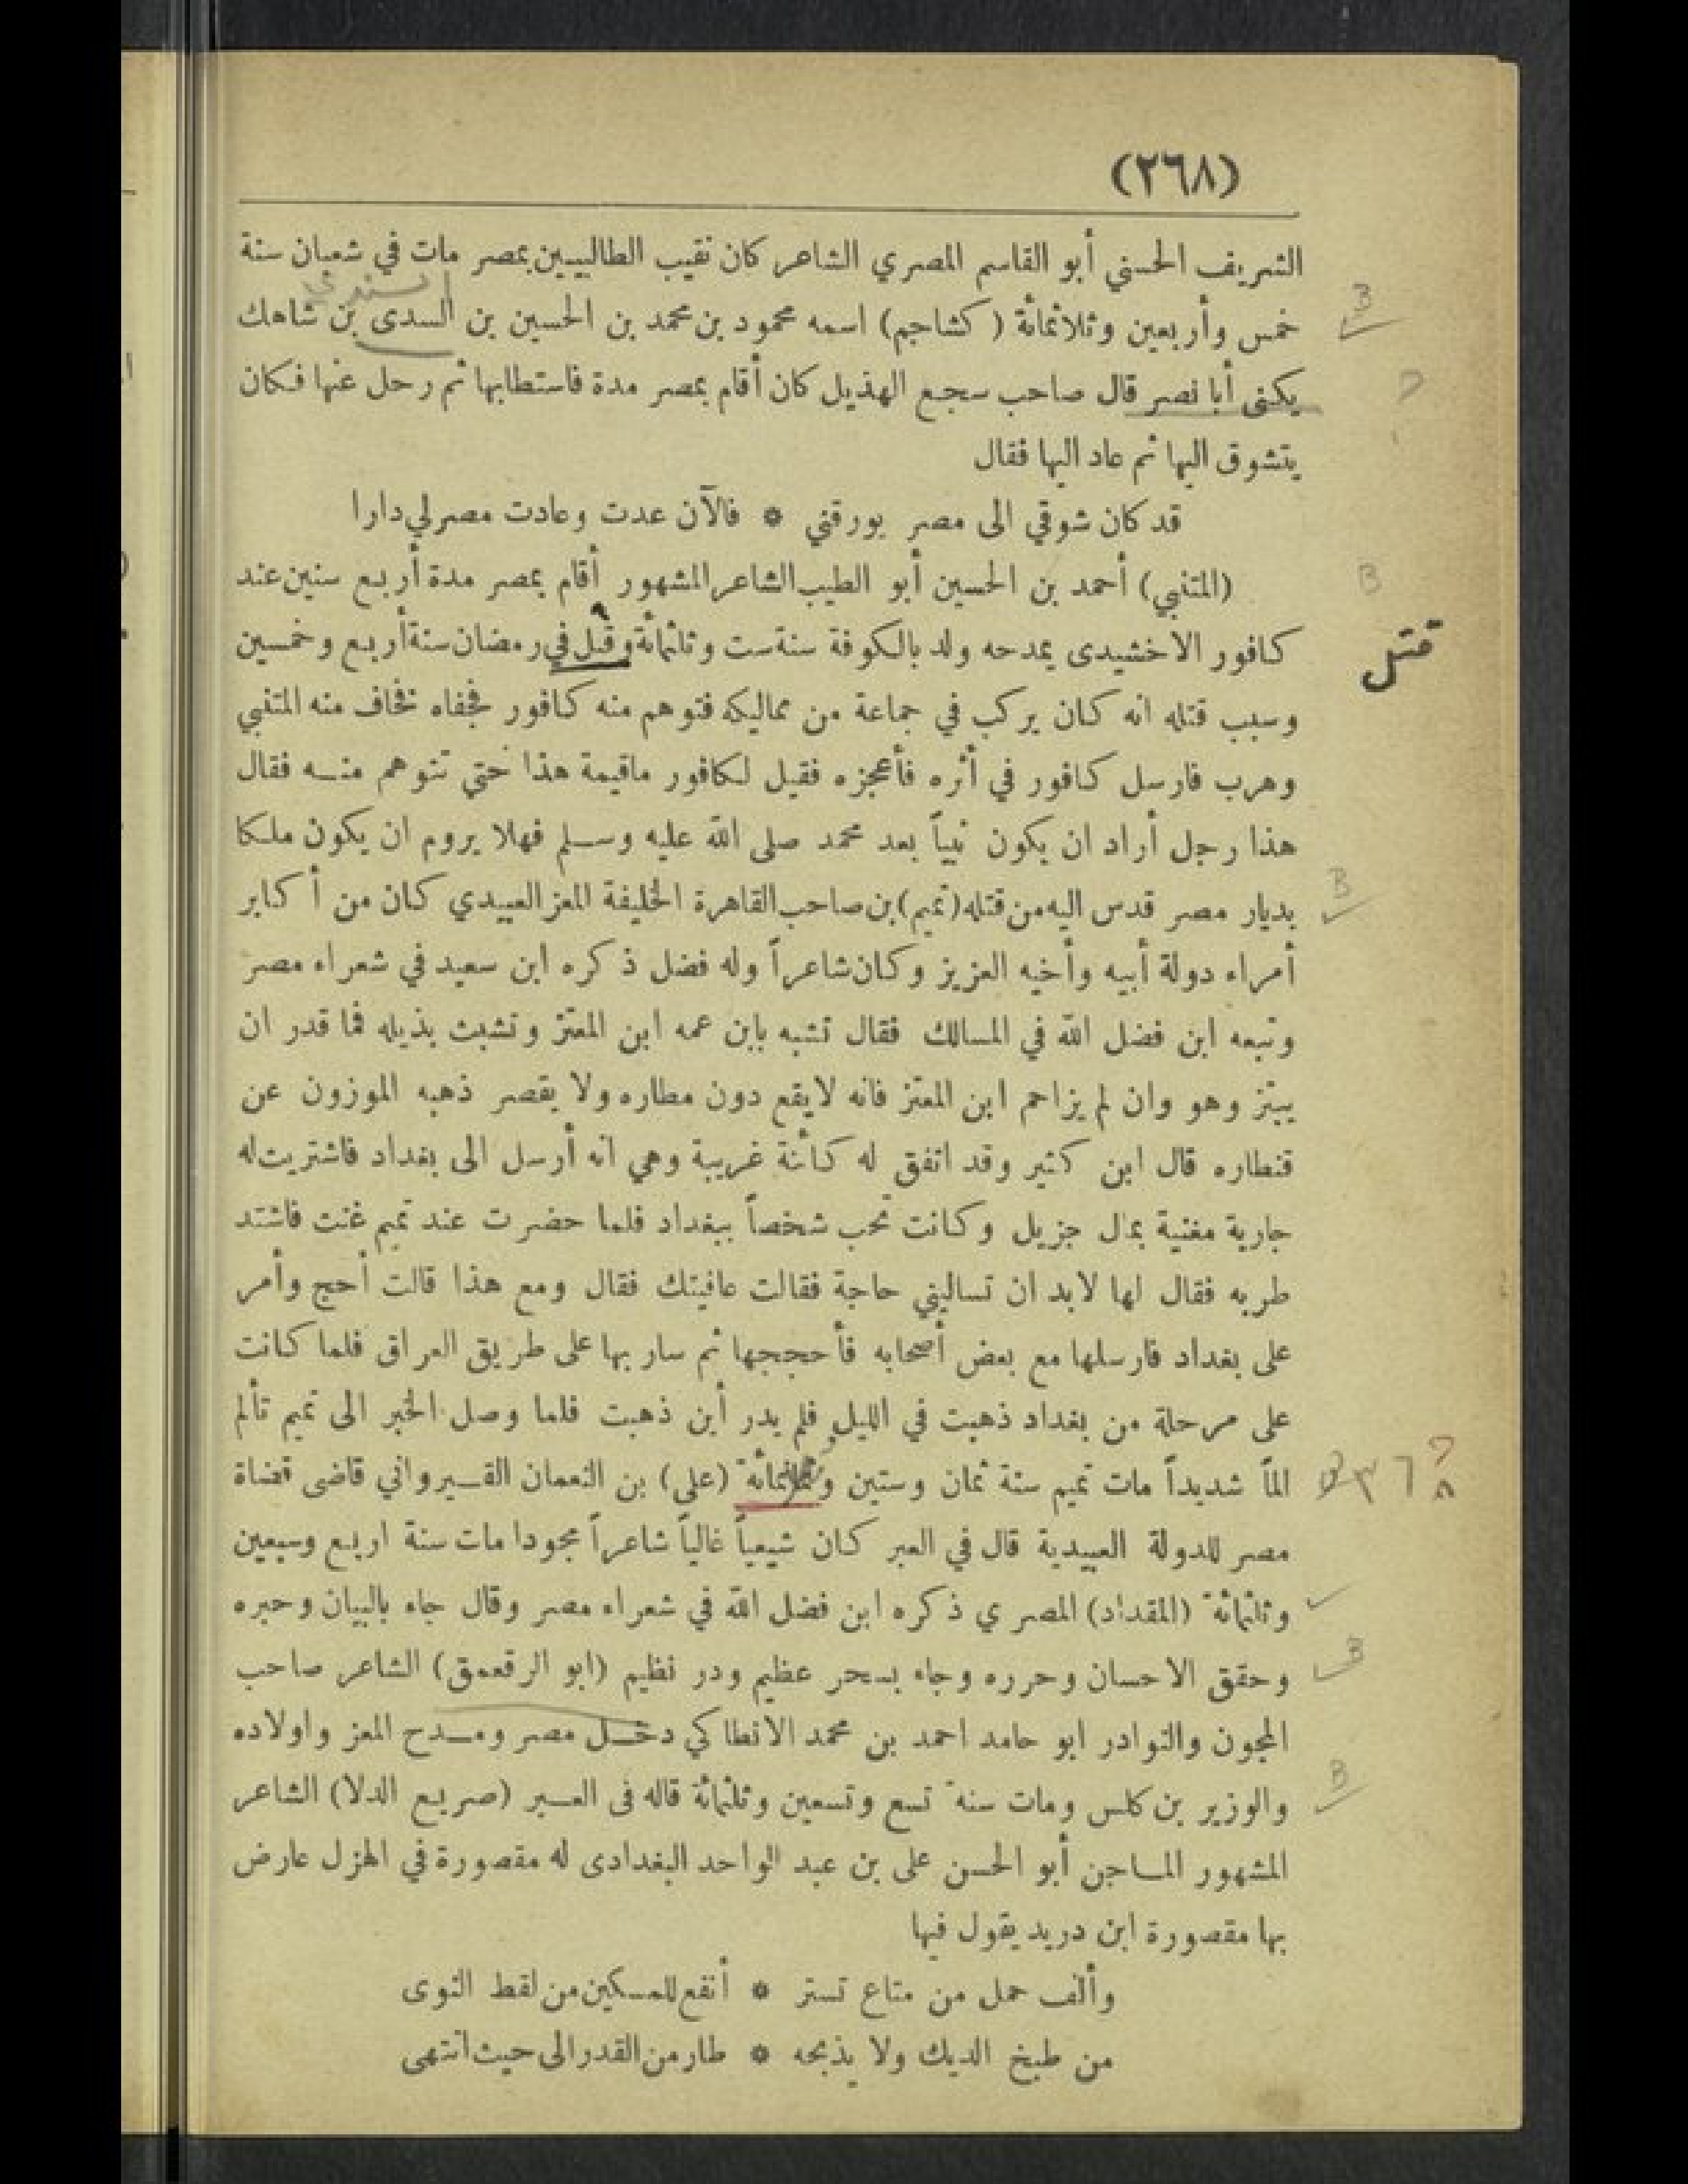 (٢٦٨)
الشريف الحسني أبو القاسم المصري الشاعر كان نقيب الطالبيين بمصر مات في شعبان سنة
السندي
B
خمس وأربعين وثلاثمائة (كشاجم) اسمه محمود بن محمد بن الحسين بن السدى بن شاهك
يكنى أبا نصر قال صاحب سجع الهذيل كان أقام بمصر مدة فاستطابها ثم رحل عنها فكان
يتشوق اليها ثم عاد اليها فقال
قد كان شوقي الى مصر يورقني * فالآن عدت وعادت مصر لي دارا
B
(المتنبي) أحمد بن الحسين أبو الطيب الشاعر المشهور أقام بمصر مدة أربع سنين عند
قتل
كافور الاخشيدى يمدحه ولد بالكوفة سنة ست وثلثمائة وقبل في رمضان سنة أربع وخمسين
وسبب قتله انه كان يركب في جماعة من مماليكه فتوهم منه كافور فجفاه فخاف منه المتنبي
وهرب فارسل كافور في أثره فأعجزه فقيل لكافور ماقيمة هذا حتى تتوهم منه فقال
هذا رجل أراد ان يكون نبياً بعد محمد صلى الله عليه وسلم فهلا يروم ان يكون ملكا
B
بديار مصر قدس اليه من قتله (تميم) بن صاحب القاهرة الخليفة المعز العبيدي كان من أكابر
أمراء دولة أبيه وأخيه العزيز وكان شاعراً وله فضل ذكره ابن سعيد في شعراء مصر
وتبعه ابن فضل الله في المسالك فقال تشبه بابن عمه ابن المعتز وتشبث بذيله فما قدر ان
يبتز وهو وان لم يزاحم ابن المعتز فانه لايقع دون مطاره ولا يقصر ذهبه الموزون عن
قنطاره قال ابن كثير وقد اتفق له كائنة غريبة وهي انه أرسل الى بغداد فاشتريت له
جارية مغنية بمال جزيل وكانت تحب شخصاً ببغداد فلما حضرت عند تميم غنت فاشتد
طربه فقال لها لابد ان تساليني حاجة فقالت عافيتك فقال ومع هذا قالت أحج وأمر
على بغداد فارسلها مع بعض أصحابه فأحججها ثم سار بها على طريق العراق فلما كانت
على مرحلة من بغداد ذهبت في الليل فلم يدر أين ذهبت فلما وصل الخبر الى تميم تألم
الماً شديداً مات تميم سنة ثمان وستين وثلثمائة (على) بن النعمان القيرواني قاضى قضاة
مصر للدولة العبيدية قال في العبر كان شيعياً غالياً شاعراً مجودا مات سنة اربع وسبعين
وثلثمائة (المقداد) المصري ذكره ابن فضل الله في شعراء مصر وقال جاء بالبيان وحبره
B
وحقق الاحسان وحرره وجاء بسحر عظيم ودر نظيم (ابو الرقعمق) الشاعر صاحب
المجون والنوادر ابو حامد احمد بن محمد الانطاكي دخل مصر ومدح المعز واولاده
B
والوزير بن كلس ومات سنة تسع وتسعين وثلثمائة قاله فى العبر (صريع الدلا) الشاعر
المشهور الماجن أبو الحسن على بن عبد الواحد البغدادى له مقصورة في الهزل عارض
بها مقصورة ابن دريد يقول فيها
وألف حمل من متاع تستر * أنفع للمسكين من لقط النوى
من طبخ الديك ولا يذبحه * طار من القدر الى حيث انتهى